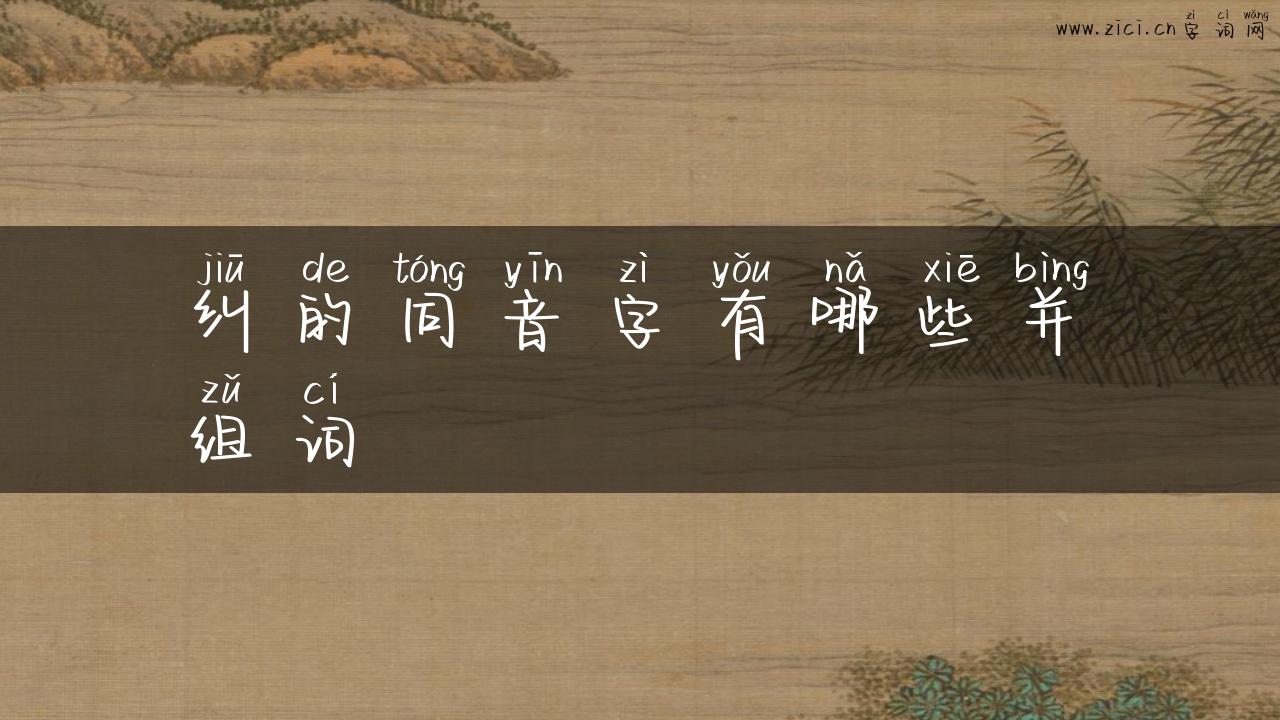 zì cí wǎng
www.zici.cn 字词网
jiū de tóng yīn zì yǒu nǎ xiē bìng
纠的同音字有哪些并
zǔ cí
组词